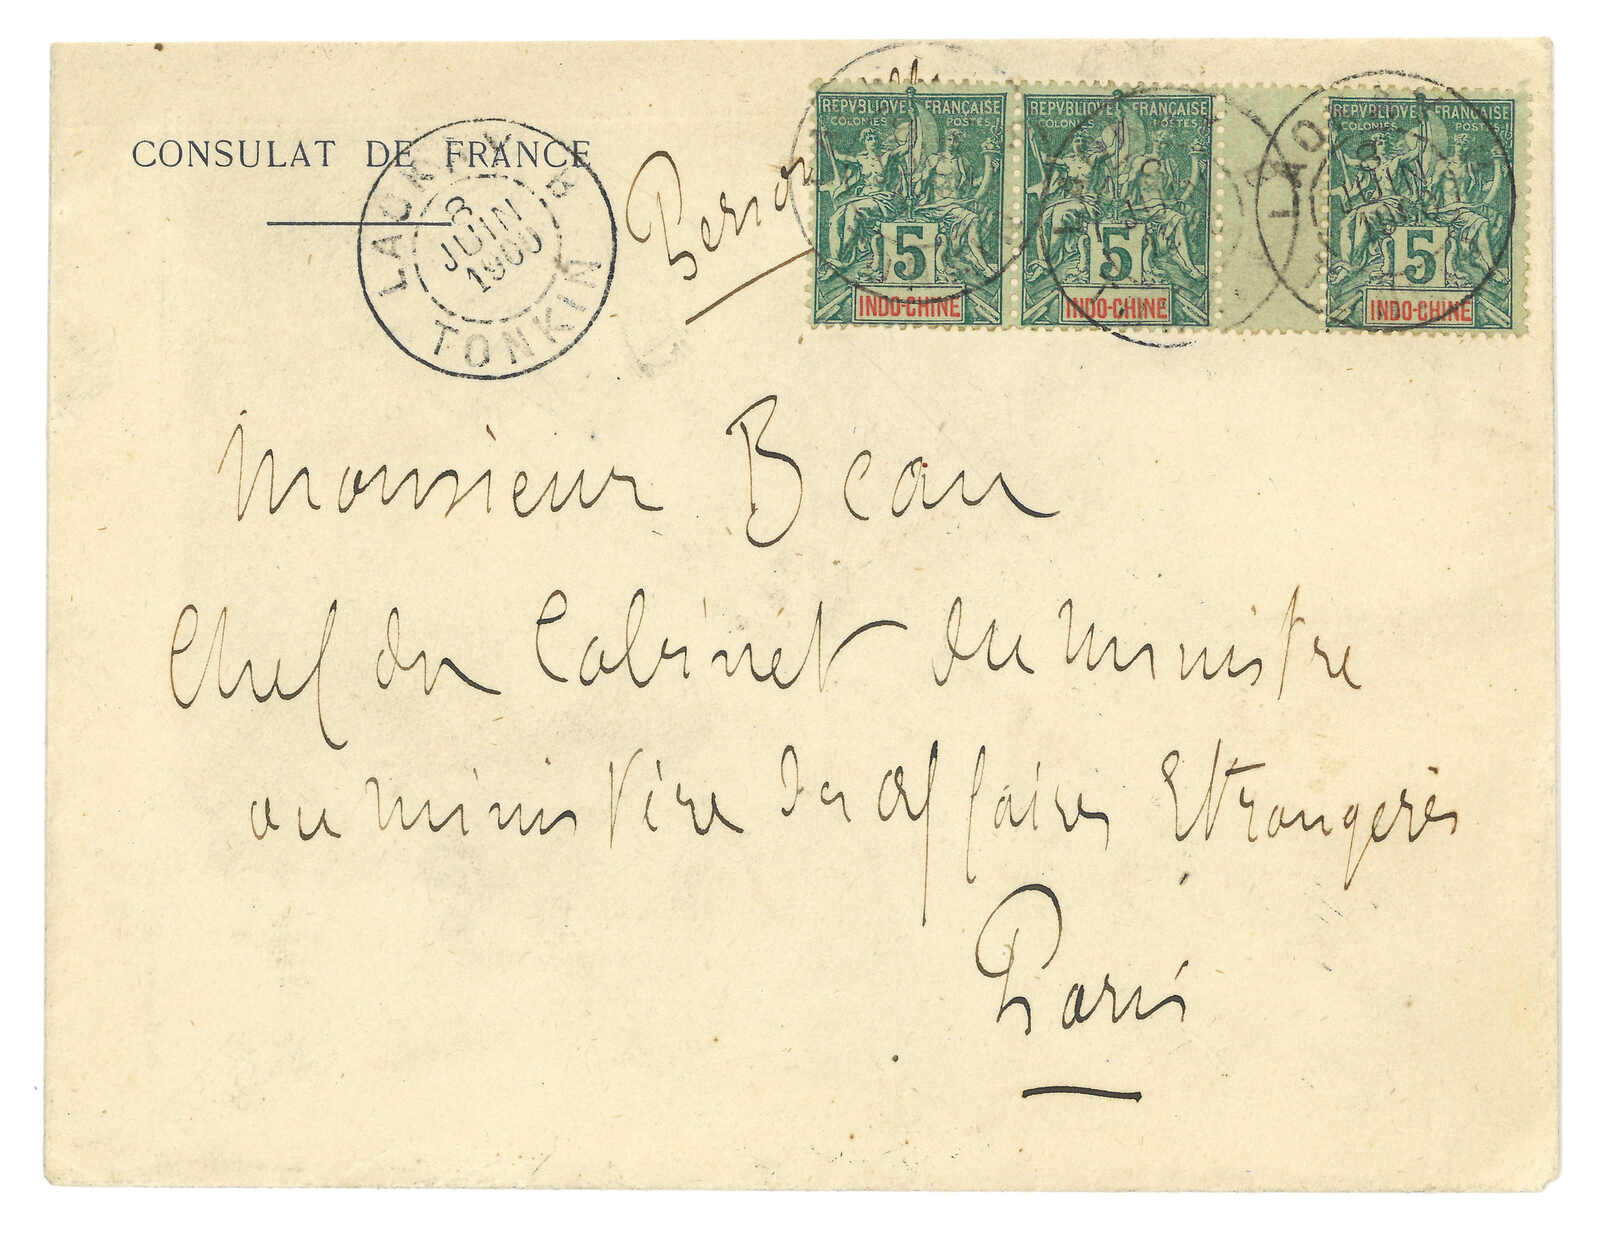 CONSULAT DE FRANCE
LAOKAY
8
JUIN
1900
TONKIN
REPVBLIQVE FRANÇAISE
COLONIES POSTES
5
INDO-CHINE
REPVBLIQVE FRANÇAISE
COLONIES POSTES
5
INDO-CHINE
REPVBLIQVE FRANÇAISE
COLONIES POSTES
5
INDO-CHINE
LAO
8
JUIN
Monsieur Beau
Chef du Cabinet du Ministre
au ministère des Affaires Etrangères
Paris